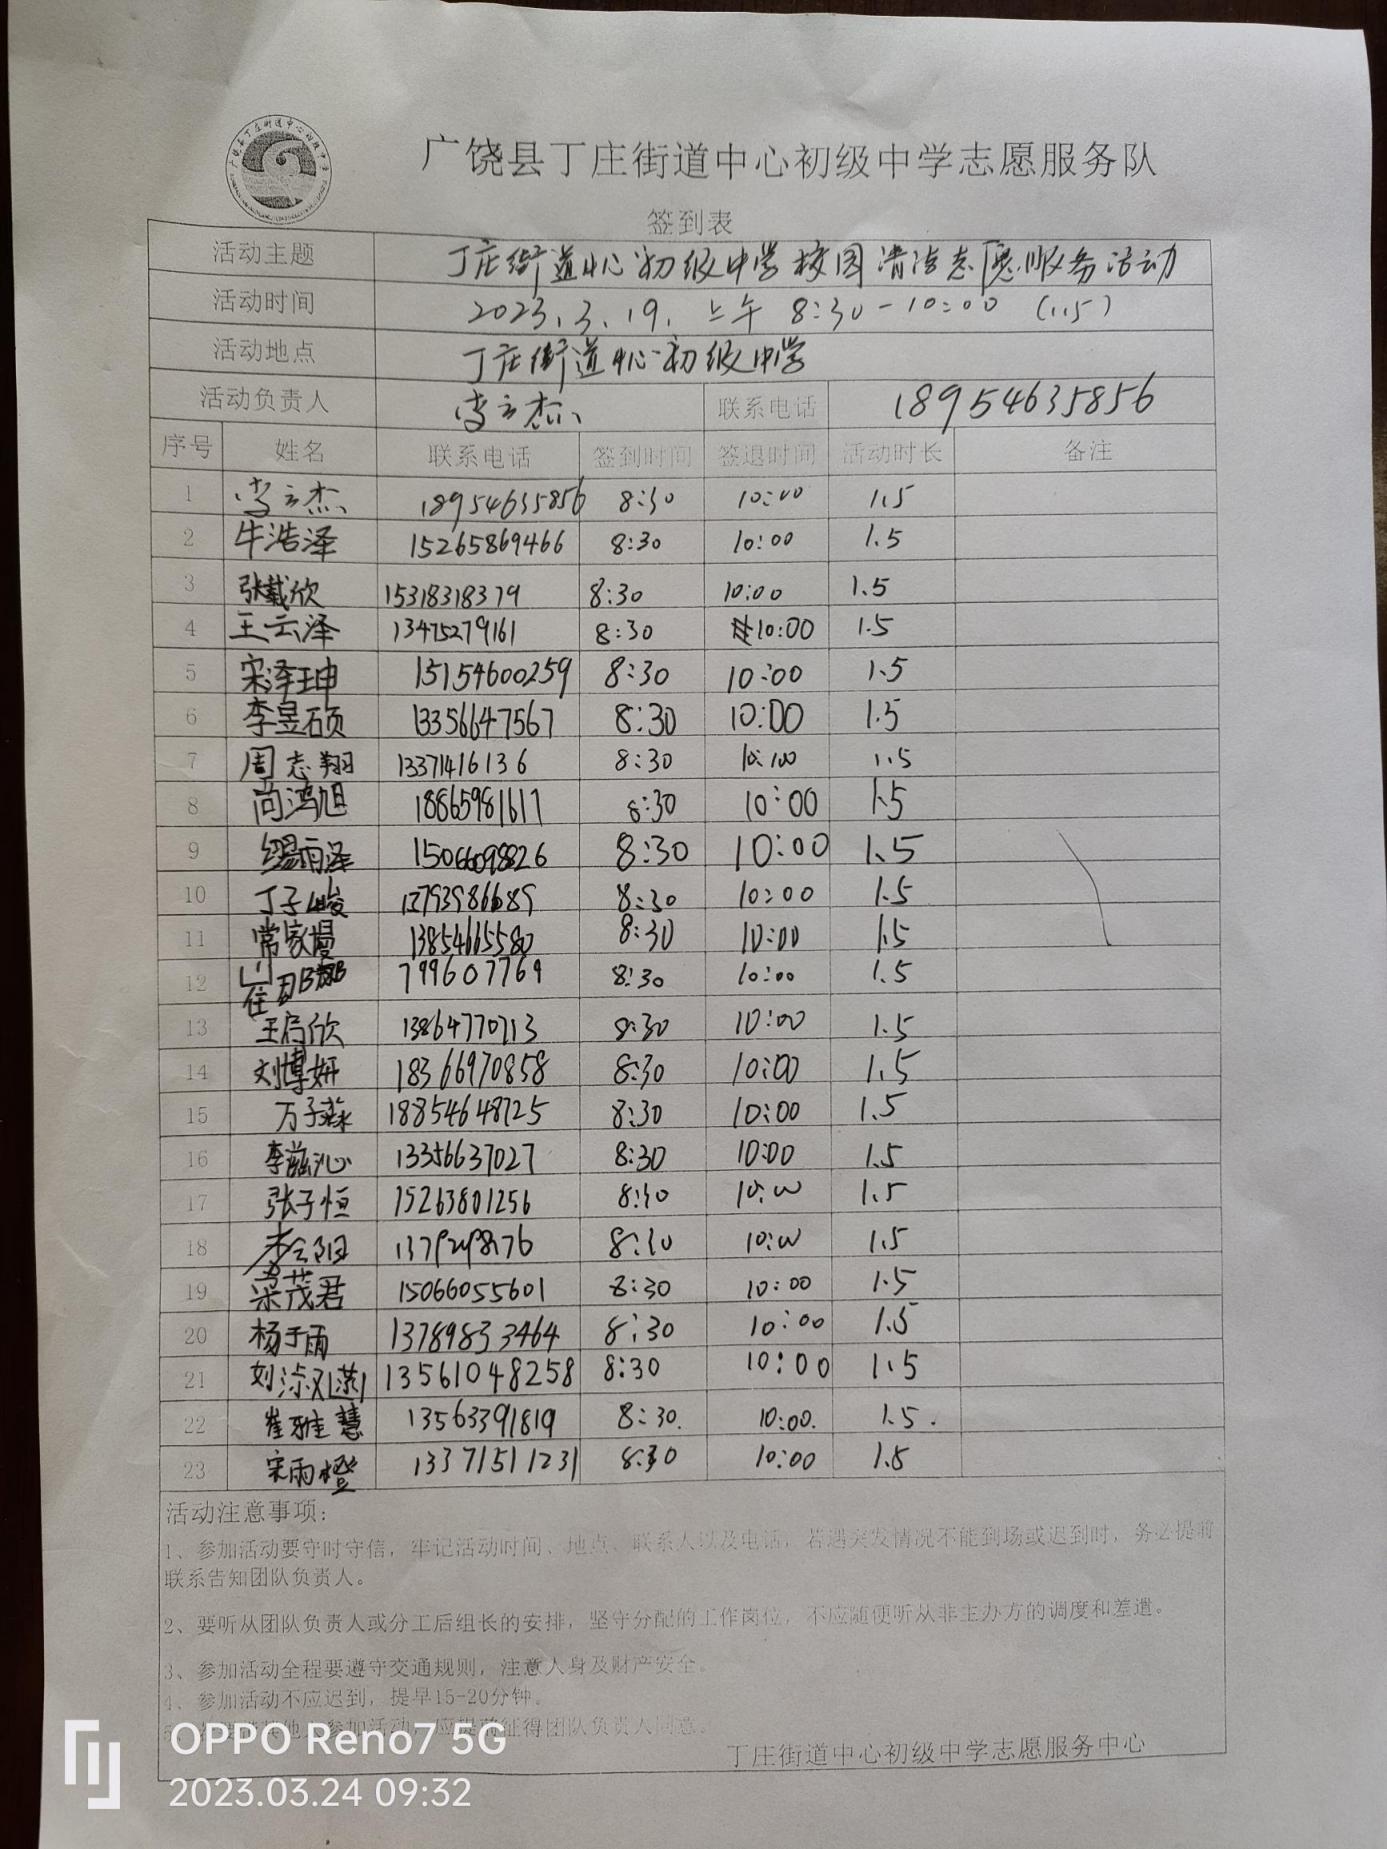 广饶县丁庄街道中心初级中学志愿服务队
签到表
活动主题 丁庄街道中心初级中学校园清洁志愿服务活动
活动时间 2023.3.19. 上午 8:30-10:00 (1.5)
活动地点 丁庄街道中心初级中学
活动负责人 李立杰 联系电话 18954635856
序号 姓名 联系电话 签到时间 签退时间 活动时长 备注
1 李立杰 18954635856 8:30 10:00 1.5
2 牛浩泽 15265869466 8:30 10:00 1.5
3 张戴欣 15318318379 8:30 10:00 1.5
4 王云泽 13475279161 8:30 10:00 1.5
5 宋泽珅 15154600259 8:30 10:00 1.5
6 李昱硕 13356647567 8:30 10:00 1.5
7 周志翔 13371416136 8:30 10:00 1.5
8 尚鸿旭 18865981617 8:30 10:00 1.5
9 雨泽 15066098826 8:30 10:00 1.5
10 丁子峻 8:30 10:00 1.5
11 常家 13854665580 8:30 10:00 1.5
12 799607769 8:30 10:00 1.5
13 王启欣 13864770713 8:30 10:00 1.5
14 刘博妍 18366970858 8:30 10:00 1.5
15 万子淼 18854648725 8:30 10:00 1.5
16 李兹沁 13356637027 8:30 10:00 1.5
17 张子恒 15263801256 8:30 10:00 1.5
18 8:30 10:00 1.5
19 梁茂君 15066055601 8:30 10:00 1.5
20 杨于雨 13789833464 8:30 10:00 1.5
21 刘 13561048258 8:30 10:00 1.5
22 崔雅慧 13563391819 8:30. 10:00. 1.5.
23 宋雨橙 13371511231 8:30 10:00 1.5
活动注意事项：
1、参加活动要守时守信，牢记活动时间、地点、联系人以及电话，若遇突发情况不能到场或迟到时，务必提前
联系告知团队负责人。
2、要听从团队负责人或分工后组长的安排，坚守分配的工作岗位，不应随便听从非主办方的调度和差遣。
3、参加活动全程要遵守交通规则，注意人身及财产安全。
4、参加活动不应迟到，提早15-20分钟。
参加活动，应提前征得团队负责人同意。
丁庄街道中心初级中学志愿服务中心
OPPO Reno7 5G
2023.03.24 09:32